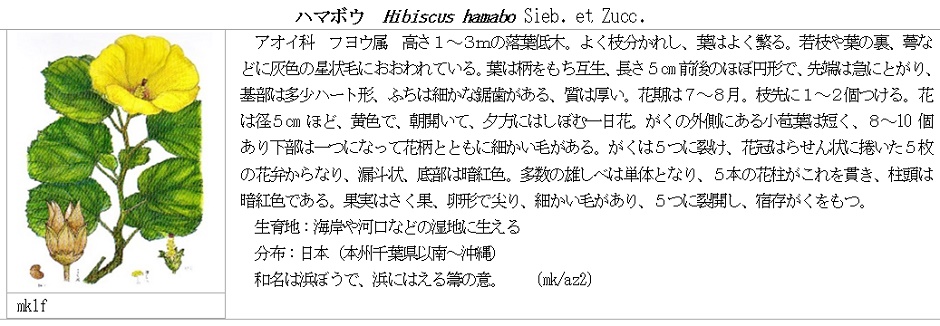 ハマボウ　Hibiscus hamabo Sieb. et Zucc.
アオイ科　フヨウ属　高さ１～３ｍの落葉低木。よく枝分かれし、葉はよく繁る。若枝や葉の裏、萼な
どに灰色の星状毛におおわれている。葉は柄をもち互生、長さ５㎝前後のほぼ円形で、先端は急にとがり、
基部は多少ハート形、ふちは細かな鋸歯がある、質は厚い。花期は７～８月。枝先に１～２個つける。花
は径５㎝ほど、黄色で、朝開いて、夕方にはしぼむ一日花。がくの外側にある小苞葉は短く、８～10 個
あり下部は一つになって花柄とともに細かい毛がある。がくは５つに裂け、花冠はらせん状に捲いた５枚
の花弁からなり、漏斗状、底部は暗紅色。多数の雄しべは単体となり、５本の花柱がこれを貫き、柱頭は
暗紅色である。果実はさく果、卵形で尖り、細かい毛があり、５つに裂開し、宿存がくをもつ。
生育地：海岸や河口などの湿地に生える
分布：日本（本州千葉県以南～沖縄）
和名は浜ぼうで、浜にはえる
の意。　　（mk/az2）
mklf